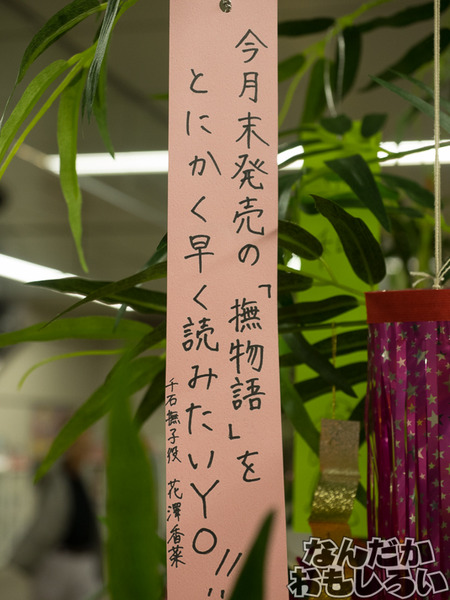 今月末発売の「撫物語」を
とにかく早く読みたいYO!!
千石撫子役 花澤香菜
なんだか
おもしろい